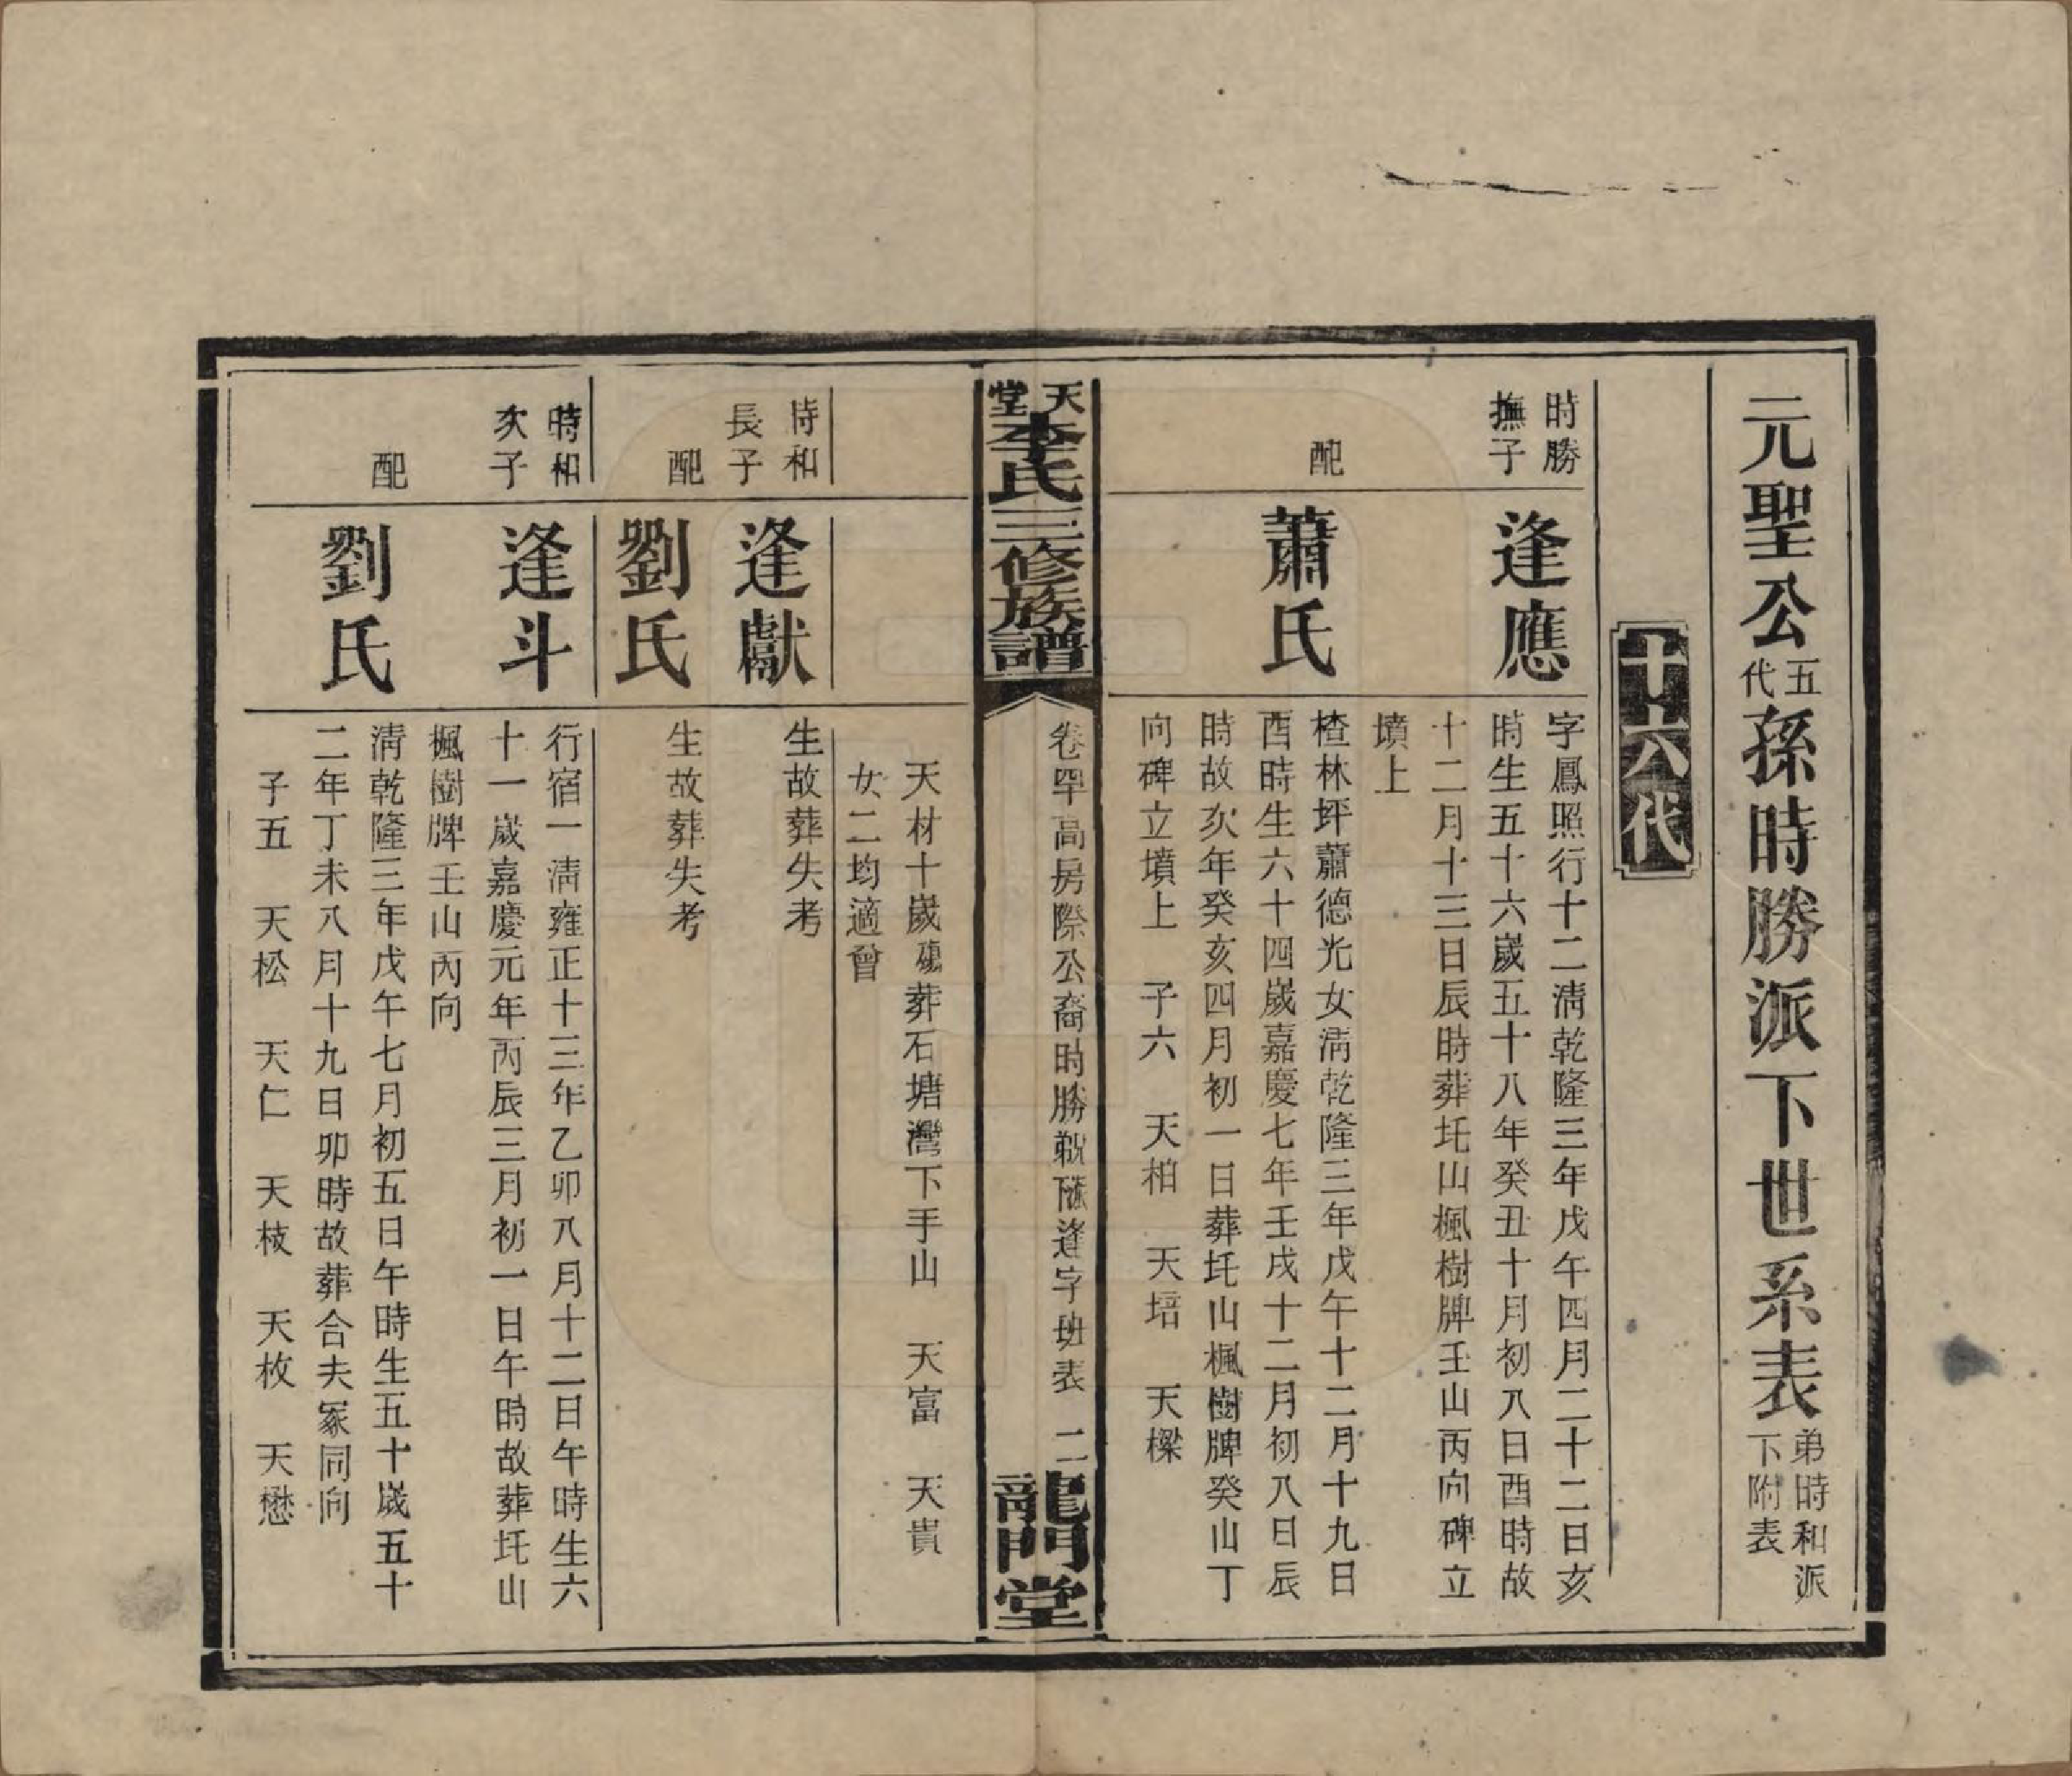 元聖公五代孫時勝派下世系表弟時和派下附表
十六代
時勝撫子
逢應
字鳳照行十二淸乾隆三年戊午四月二十二日亥
時生五十六歲五十八年癸丑十月初八日酉時故
十二月十三日辰時葬圫山楓樹牌壬山丙向碑立
墳上
配
蕭氏
楂林坪蕭德光女淸乾隆三年戊午十二月十九日
酉時生六十四歲嘉慶七年壬戌十二月初八日辰
時故次年癸亥四月初一日葬圫山楓樹牌癸山丁
向碑立墳上 子六 天柏 天培 天樑
天堂李氏三修族譜
卷四 高房際公裔時勝 逢字班表 二
龍門堂
天材十歲殤葬石塘灣下手山 天富 天貴
女二均適曾
時和長子
逢獻
生故葬失考
配
劉氏
生故葬失考
時和次子
逢斗
行宿一淸雍正十三年乙卯八月十二日午時生六
十一歲嘉慶元年丙辰三月初一日午時故葬圫山
楓樹牌壬山丙向
配
劉氏
淸乾隆三年戊午七月初五日午時生五十歲五十
二年丁未八月十九日卯時故葬合夫冢同向
子五 天松 天仁 天枝 天枚 天懋